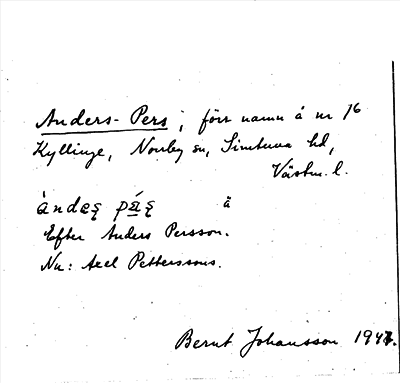 Anders-Pers; förr namn å nr 16
Kyllinge, Norrby sn, Simtuna hd,
Västm. l.
å
Efter Anders Persson.
Nu: Axel Petterssons.
Bernt Johansson 194